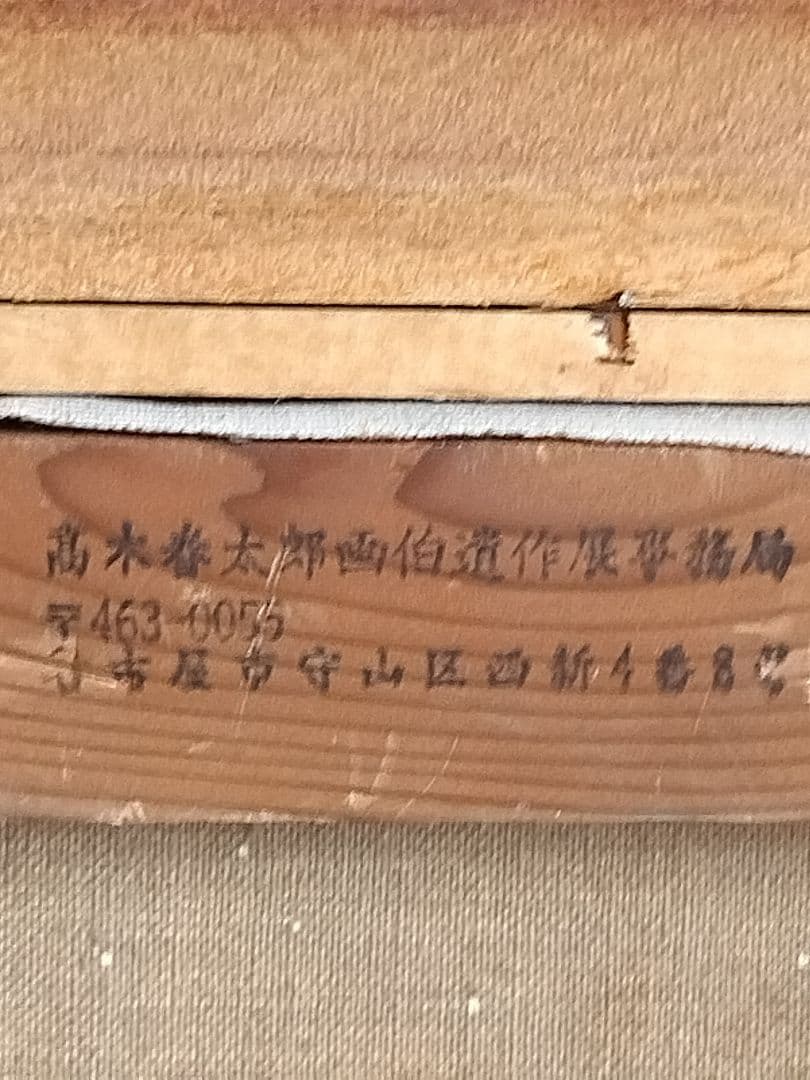 髙木春太郎画伯遺作展事務局
〒463-0055
名古屋市守山区西新4番8号